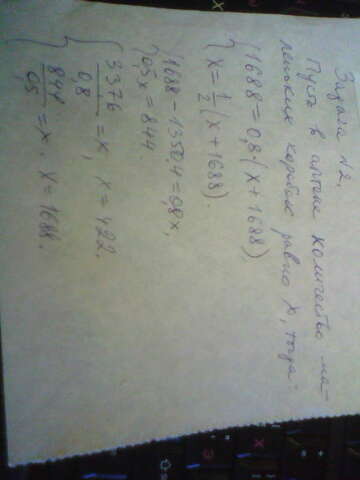 Задача №2.
Пусть в аптеке количество ма-
леньких коробок равно x, тогда:
{ 1688 = 0,8·(x + 1688)
x = 1/2 (x + 1688).
{ 1688 - 1350,4 = 0,8x,
0,5x = 844
{ 337,6 / 0,8 = x, x = 422.
{ 844 / 0,5 = x, x = 1688.